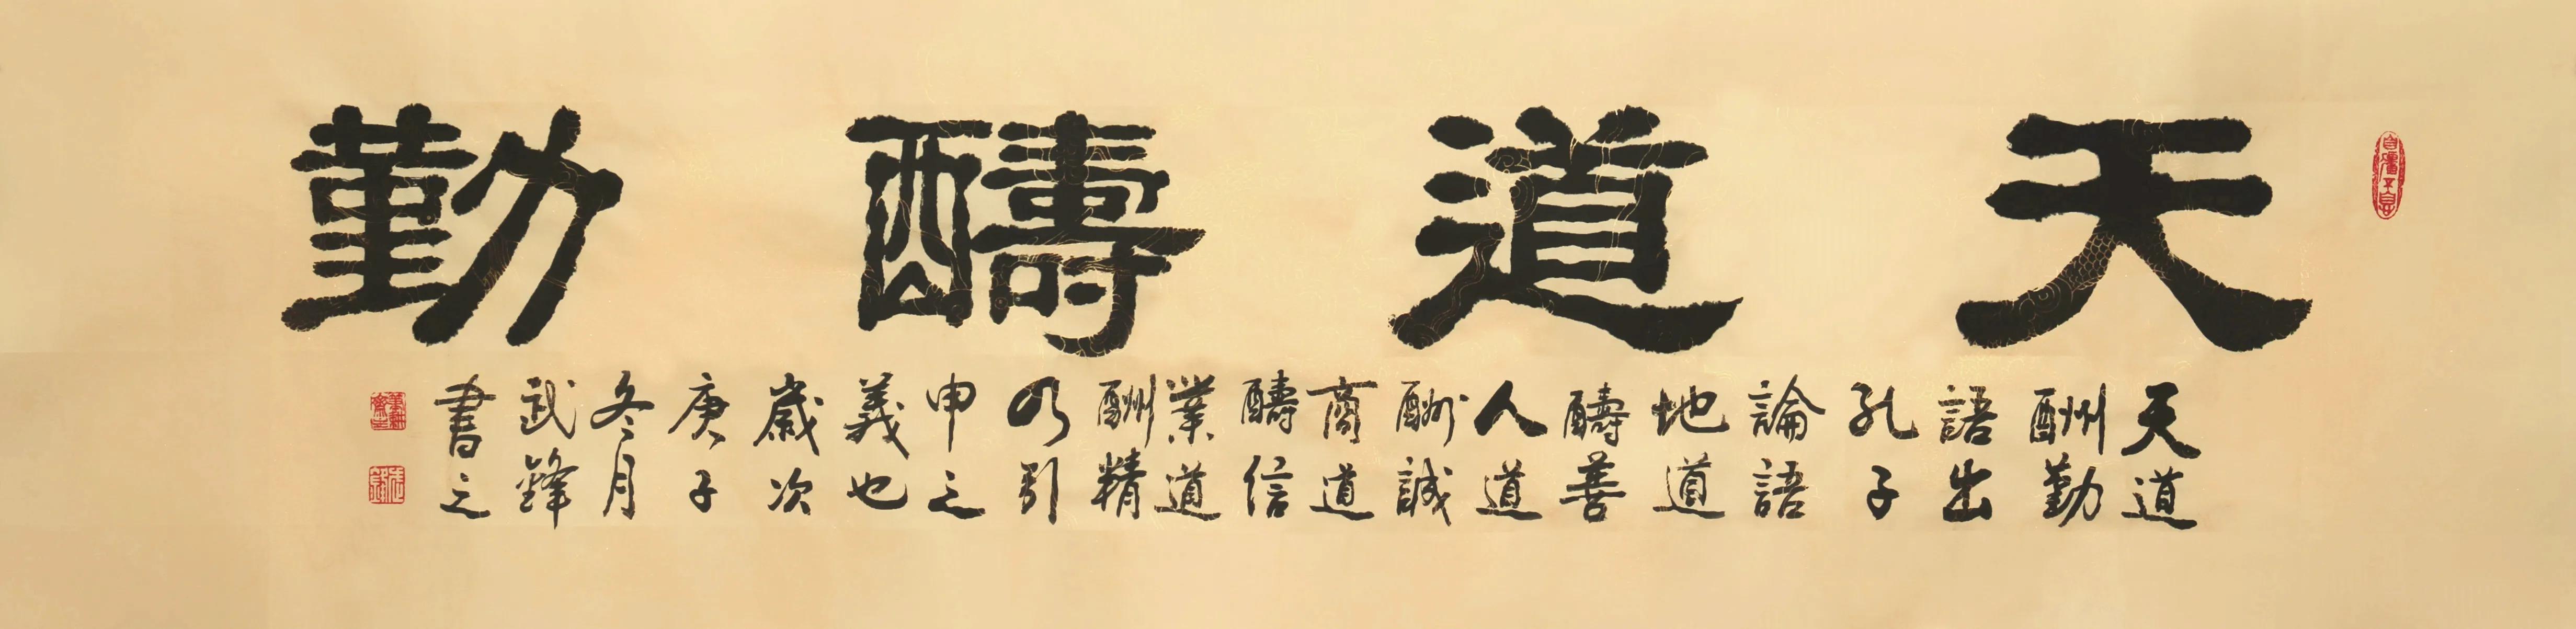 天道醻勤
天道
酬勤
語出
孔子
論語
地道
醻善
人道
酬誠
商道
醻信
業道
酬精
乃引
申之
義也
歲次
庚子
冬月
武鋒
書之